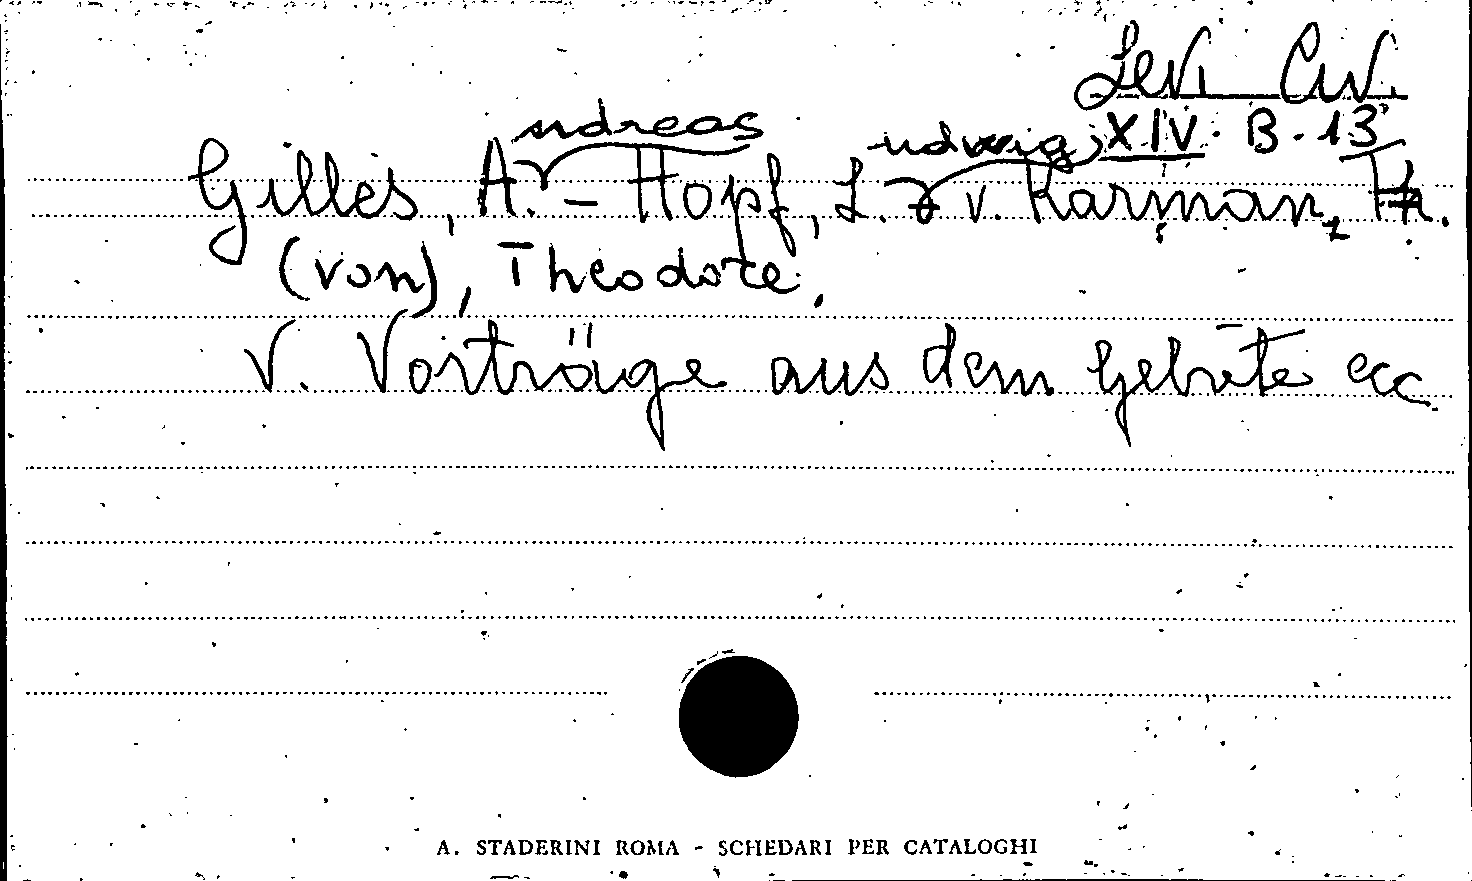 Levi Civ.
XIV. B. 13
Gilles, Andreas - Hopf, Ludwig v. Karman, Th.
(von), Theodore.
V. Vorträge aus dem Gebiete ecc.
A. STADERINI ROMA - SCHEDARI PER CATALOGHI